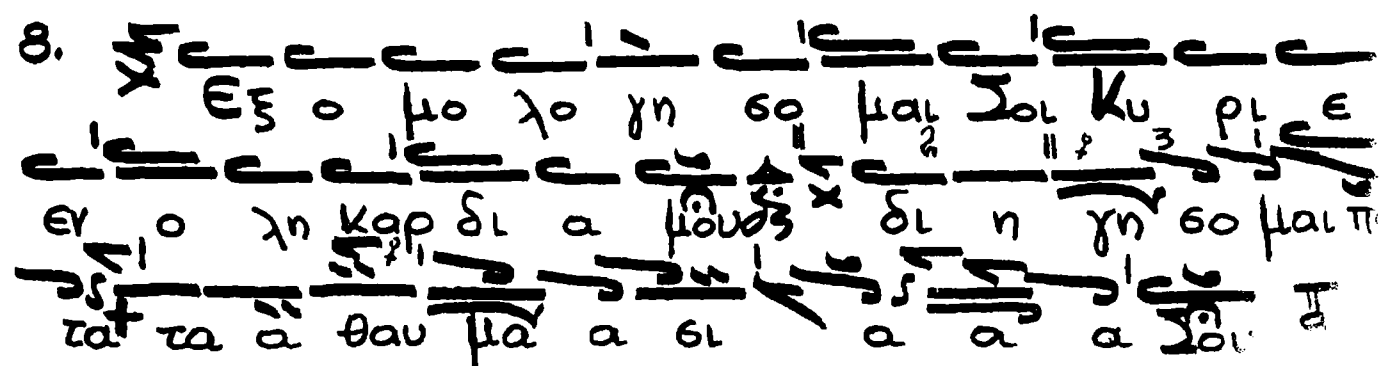 8. Εξ ο μο λο γη σο μαι Σοι Κυ ρι ε
εν ο λη καρ δι α μου δι η γη σο μαι π
τα τα α θαυ μα α σι α α α Σου